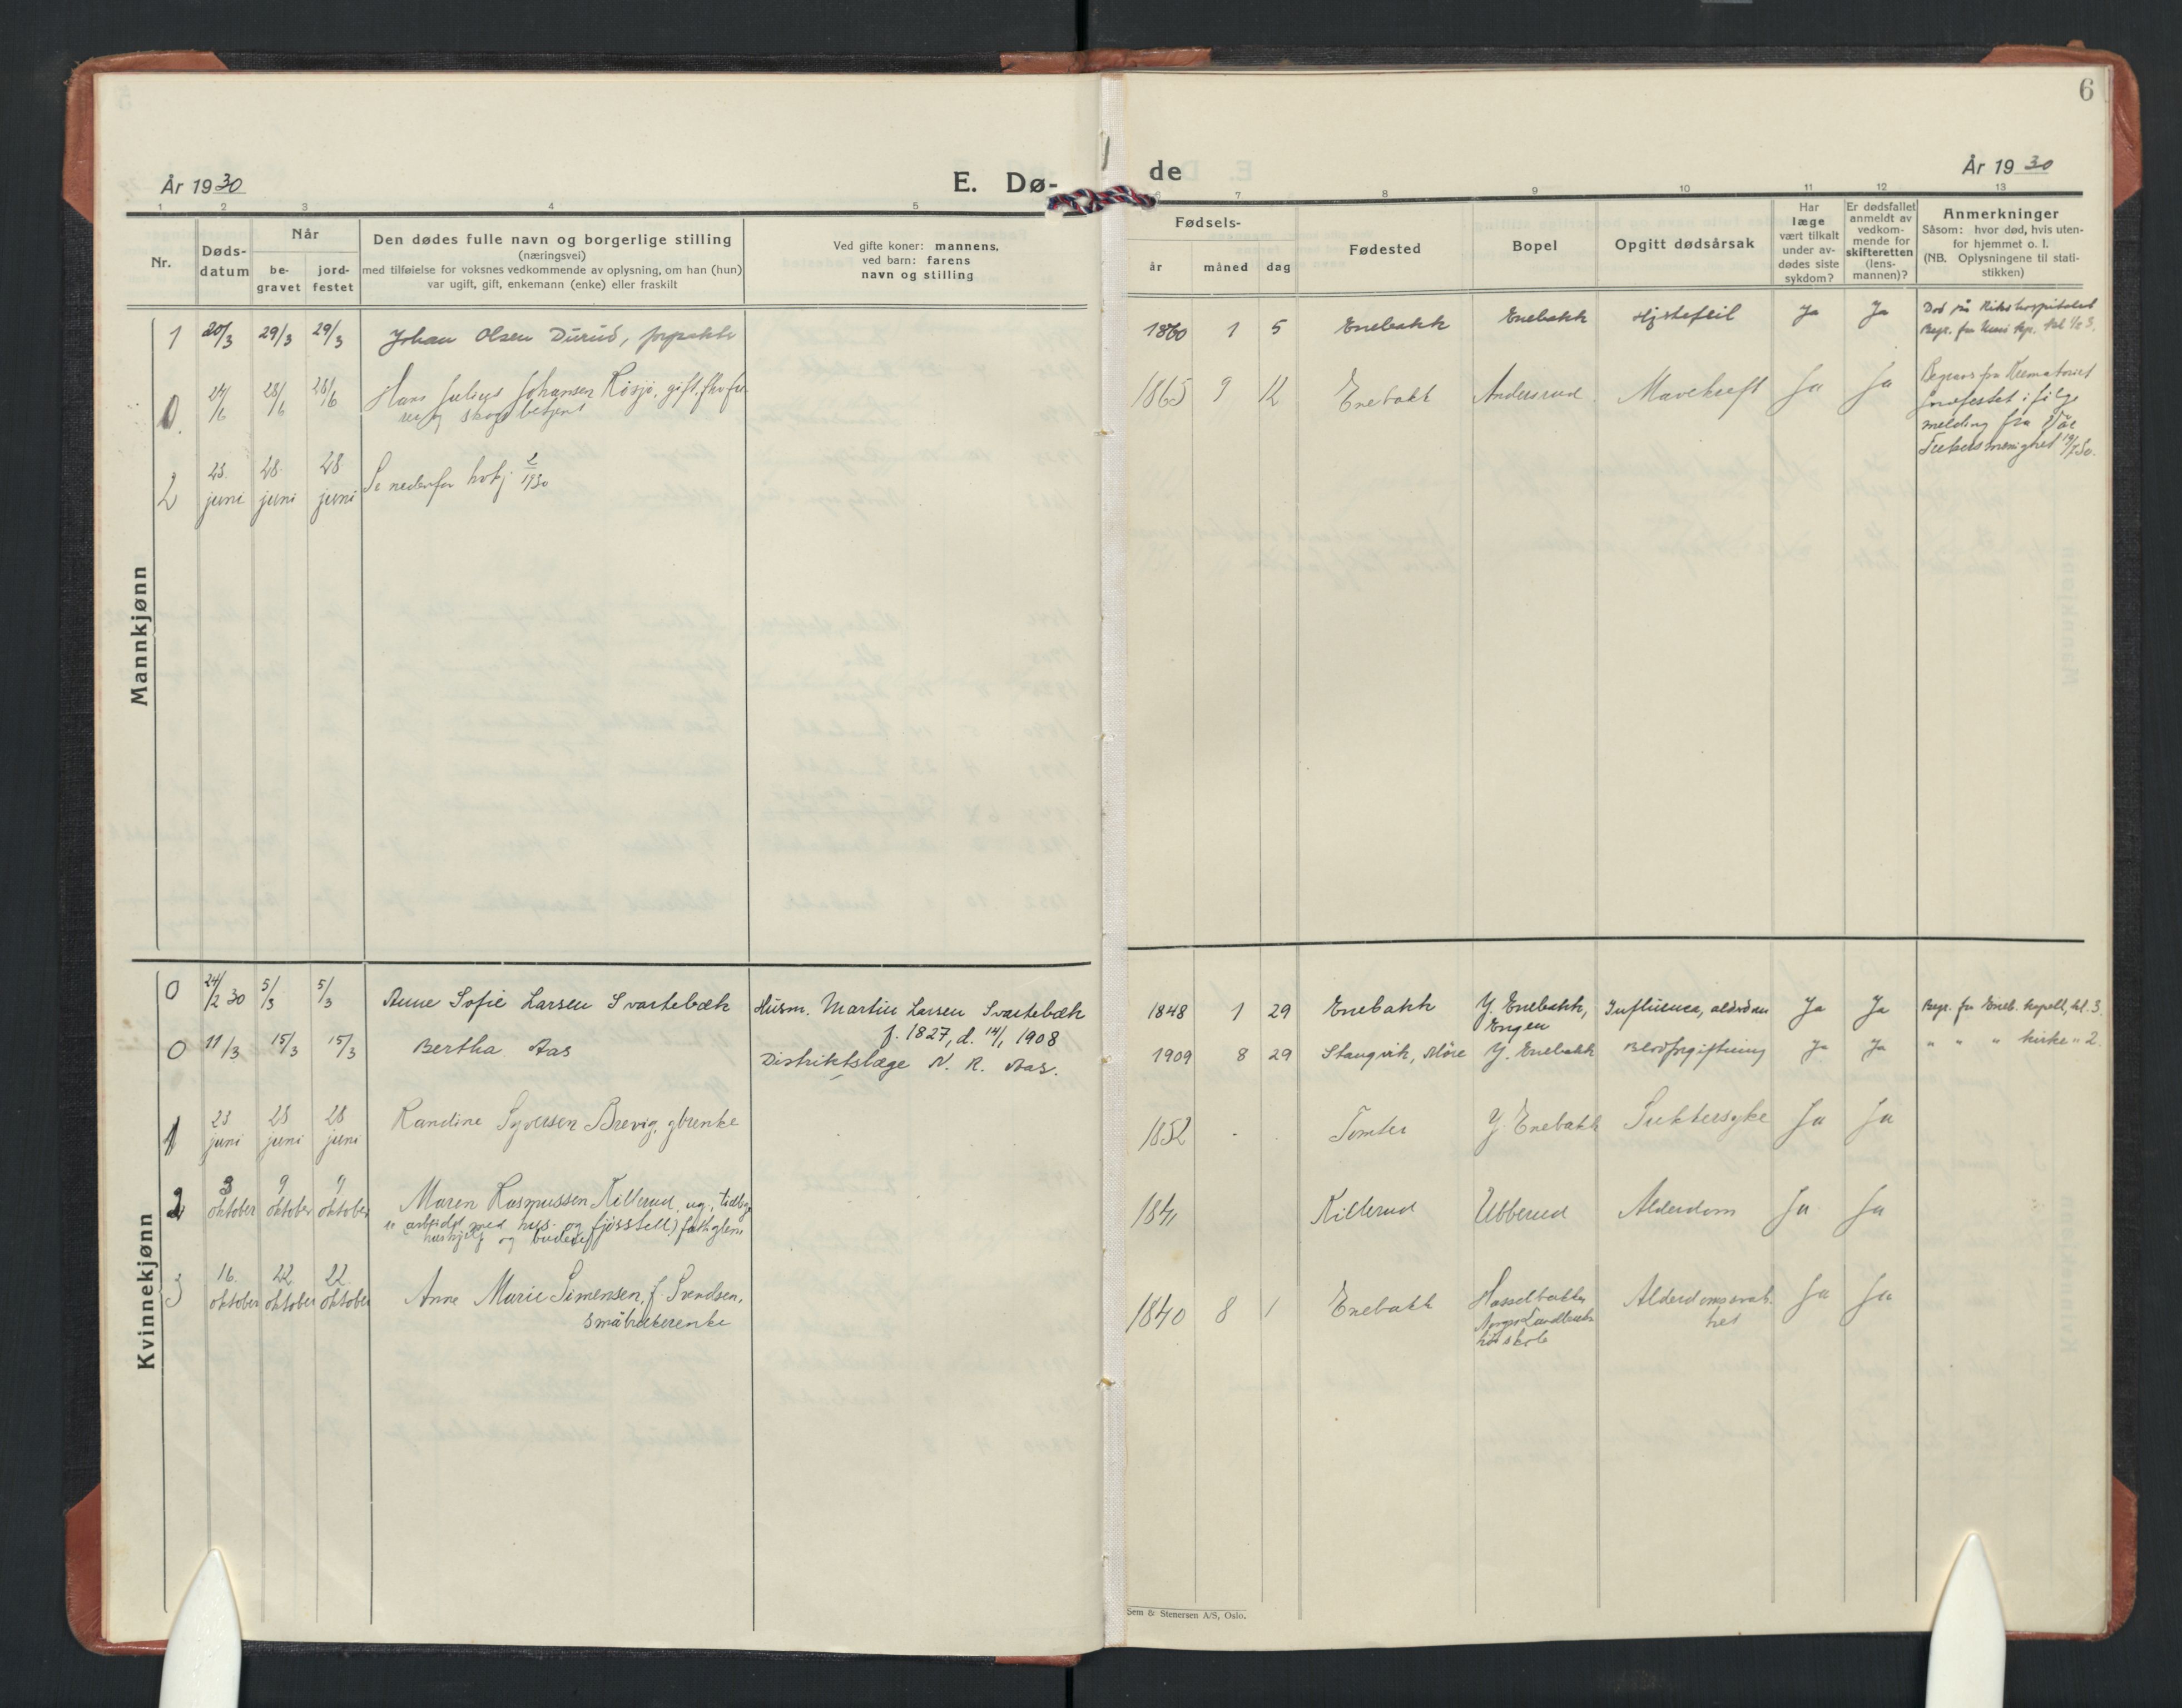 6
År 1930
E. Dø-
de
År 1930
1 2 3 4 5
6 7 8 9 10 11 12 13
Nr.
Døds-
datum
Når
be-
gravet
jord-
festet
Den dødes fulle navn og borgerlige stilling
(næringsvei)
med tilføielse for voksnes vedkommende av oplysning, om han (hun)
var ugift, gift, enkemann (enke) eller fraskilt
Ved gifte koner: mannens,
ved barn: farens
navn og stilling
Fødsels-
år måned dag
Fødested
Bopel
Opgitt dødsårsak
Har
læge
vært tilkalt
under av-
dødes siste
sykdom?
Er dødsfallet
anmeldt av
vedkom-
mende for
skifteretten
(lens-
mannen)?
Anmerkninger
Såsom: hvor død, hvis uten-
for hjemmet o. l.
(NB. Oplysningene til stati-
stikken)
Mannkjønn
1 20/3 29/3 29/3 Johan Olsen Durud, 1860 1 5 Enebakk Enebakk Hjertefeil Ja Ja Død på Rikshospitalet
0 24/6 28/6 28/6 Hans Julius Johansen gift,
skogsbetjent
1865 9 12 Enebakk Andersrud Mavekreft Ja Ja
melding fra Vår
Frelsers menighet
2 23. juni 28 juni 28 juni Se nedenfor kvkj 2/1930
Kvinnekjønn
0 24/2 30 5/3 5/3 Anne Sofie Larsen Svartebæk Husm. Martin Larsen Svartebæk
f. 1827, d. 14/1 1908
1848 1 29 Enebakk Y. Enebakk, Engen Influensa, Ja Ja Begr. fra Eneb. kapell, kl. 3.
0 11/3 15/3 15/3 Bertha Aas Distriktslæge N. R. Aas. 1909 8 29 Stangvik, Møre Y. Enebakk Blodforgiftning Ja Ja " " " kirke " 2.
1 23 juni 28 juni 28 juni Randine Syversen Brevig, gbrenke 1852 . . Tomter Y. Enebakk Sukkersyke Ja Ja
2 3 oktober 9 oktober 9 oktober Maren Rasmussen Killerud, ug, tidlige
re (arbeidet med hus- og fjosstell)
hushjelp og budeie
1841 Killerud Ubberud Alderdom Ja Ja
3 16. oktober 22 oktober 22 oktober Anne Marie Simensen, f. Svendsen,
småbrukerenke
1840 8 1 Enebakk Hasselbakken
Norges Landbruks
høiskole
Alderdomssvak-
het
Ja Ja
Sem & Stenersen A/S, Oslo.